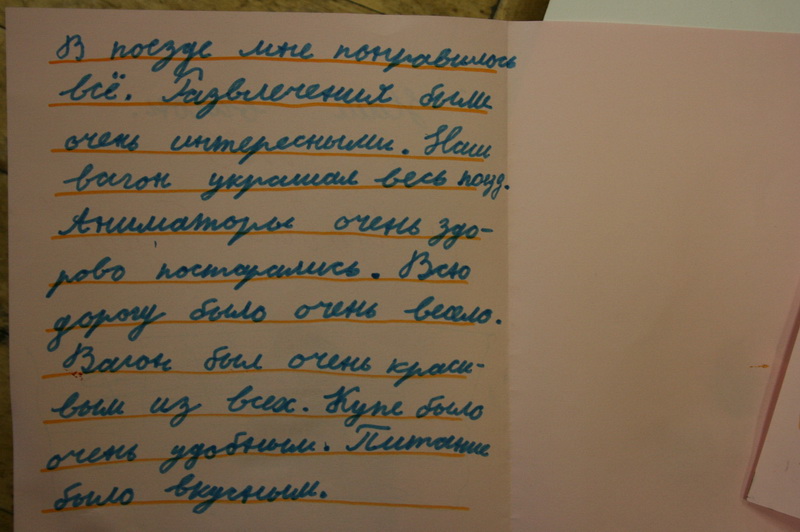 В поезде мне понравилось
всё. Развлечения были
очень интересными. Наш
вагон украшал весь поезд.
Аниматоры очень здо-
рово постарались. Всю
дорогу было очень весело.
Вагон был очень краси-
вым из всех. Купе было
очень удобным. Питание
было вкучным.